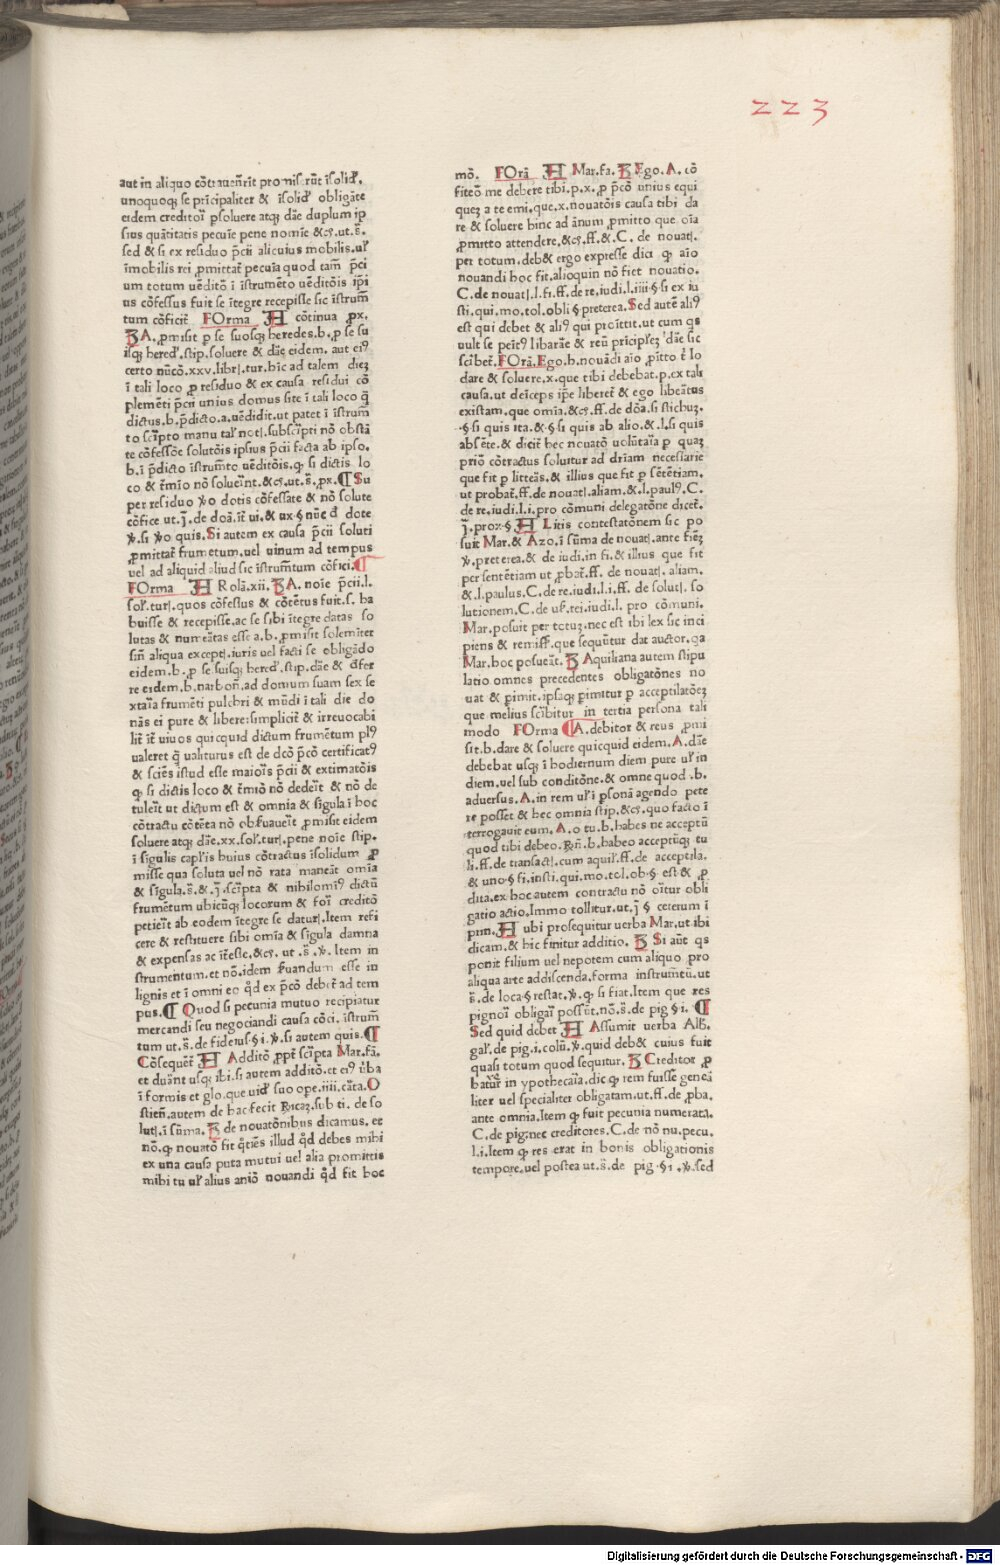 223
aut in aliquo cōtrauen̄rit promiserūt īsolid̄.
unoquoq; se prīcipaliter & īsolid̄ obligāte
eidem creditori ꝑsoluere atq; dāe duplum ip
sius quātitatis pecuīe pene nomīe &cꝫ.ut.s̄.
sed & si ex residuo p̄cii alicuius mobilis.ul̄
īmobilis rei ꝓmittat̄ pecuīa quod tam̄ p̄ci
um totum uēditō ī īstrumēto uēditōis ip̄i
us cōfessus fuit se ītegre recepisse sic īstrum̄
tum cōficit̄ FOrma A cōtinua ꝓx.
B A.ꝓmisit p se suosq; heredes.b.ꝓ se su
isq; hered̄.stip.soluere & dāe eidem. aut ei⁹
certo nūcō.xxv.libr̄.tur.hic ad talem diez
ī tali loco ꝓ residuo & ex causa residui cō
plemēti p̄cii unius domus site ī tali loco q̄
dictus.b.p̄dicto.a.uēdidit.ut patet ī īstrum̄
to scīpto manu tal̄ not̄.subscīpti nō obstā
te cōfessōe solutōis ipsius p̄cii facta ab ipso.
b.ī p̄dicto īstrum̄to uēditōis.ꝙ si dictis lo
co & t̄mīo nō solueīnt.&cꝫ.ut.s̄.ꝓx.¶ Su
per residuo ꝟo dotis cōfessate & nō solute
cōfice ut.j̄.de doā.īt̄ ui.& ux.§ nūc d̄ dote
ꝟ.si ꝟo quis.Si autem ex causa p̄cii soluti
ꝓmittat̄ frumetum.uel uinum ad tempus
uel ad aliquid aliud sic īstrum̄tum cōfici.¶
FOrma A Rolā.xii. B A. noīe p̄cii.l.
sol̄.tur̄.quos cōfessus & cōtētus fuit.s. ha
buisse & recepisse.ac se sibi ītegre datas so
lutas & numeātas esse a.b.ꝓmisit solemīter
sin̄ aliqua except̄.iuris uel facti se obligādo
eidem.b.ꝓ se suisq; hered̄.stip.dāe & d̄fer
re eidem.b.narbon̄.ad domum suam sex se
xtaīa frumēti pulchri & mūdi ī tali die do
nās ei pure & libere:simplicit̄ & irreuocabi
lit̄ īt̄ uiuos quicquid dictum frumētum pl⁹
ualeret q̄ ualiturus est de dcō p̄cō certificat⁹
& sciēs istud esse maioīs p̄cii & extimatōis
ꝙ si dictis loco & t̄mīo nō dedeīt & nō de
tuleīt ut dictum est & omnia & sīgula ī hoc
cōtractu cōtēta nō obs̄uaueīt ꝓmisit eidem
soluere atq; dāe.xx.sol̄.tur̄.pene noīe stip.
ī sīgulis capl̄is huius cōtractus īsolidum ꝓ
misse qua soluta uel nō rata maneāt omīa
& sīgula.s̄.&.j̄.scīpta & nihilomī⁹ dictū
frumētum ubicūq; locorum & foīi creditō
petieīt ab eodem ītegre se datur̄.Item refi
cere & restituere sibi omīa & sīgula damna
& expensas ac īt̄esse.&cꝫ. ut .s̄.ꝟ. Item in
strumentum.et nō.idem s̄uandum esse in
lignis et ī omni eo q̄d ex p̄cō debet̄ ad tem
pus.¶ Quod si pecunia mutuo recipiatur
mercandi seu negociandi causa cōci. īstrum̄
tum ut.s̄.de fideius§ i.ꝟ.si autem quis.¶
Cōsequēt̄ A Additō ꝓpt̄ scīpta Mar.fā.
et duānt usq; ibi.si autem additō.et ei⁹ ūba
ī formis et glo.que uid̄ suo ope.iiii.cāta.O
stien̄.autem de hac fecit Ricaz.sub ti. de so
lut̄.ī sūma. B de nouatōnibus dicamus.et
nō.ꝙ nouatō fit q̄tiēs illud q̄d debes mihi
ex una causa puta mutui uel alia promittis
mihi tu ul̄ alius aniō nouandi q̄d fit hoc
mō. FOrā A Mar.fa. B Ego.A. cō
fiteō me debere tibi.p.x.ꝓ p̄cō unius equi
quez a te emi.que.x.nouatōis causa tibi da
re & soluere hinc ad ānum ꝓmitto que oīa
ꝓmitto attendere.&cꝫ.ff.& C. de nouat̄.
per totum.deb& ergo expresse dici ꝙ aīo
nouandi hoc fit.alioquin nō fiet nouatio.
C.de nouat̄.l.fi.ff.de re.iudi.l.iiii § si ex iu
sti.qui.mo.tol.obli § preterea.Sed autē ali⁹
est qui debet & ali⁹ qui proīttit.ut cum qs
uult se peīt⁹ libarāe & reū prīcip̄ez dāe sic
scībet̄.FOrā.Ego.b.nouādi aīo ꝓitto t̄ lo
dare & soluere.x.que tibi debebat.p.ex tali
causa.ut deīceps ip̄e liberet̄ & ego libeātus
existam.que omīa.&cꝫ.ff.de dōa.si stichuz.
§ si quis ita.& § si quis ab alio.& .l.si quis
absēte.& dicit̄ hec nouatō uolūtaīa p quaz
priō cōtractus soluitur ad dr̄iam necessarie
que fit p litteās.& illius que fit p sētētiam.
ut probat̄.ff.de nouat̄.aliam.&.l.paul⁹.C.
de re.iudi.l.i.pro cōmuni delegatōne dicet̄.
j̄.prox.§ A Litis contestatōnem sic po
suit Mar.& Azo.ī sūma de nouat̄.ante fiēz
ꝟ.preterea.& de iudi.in fi.& illius que fit
per sentētiam ut ꝓbat̄.ff. de nouat̄. aliam.
& .l.paulus.C.de re.iudi.l.i.ff. de solut̄. so
lutionem.C.de us̄.rei.iudi.l. pro cōmuni.
Mar.posuit per totuz.nec est ibi lex sic inci
piens & remiss̄.que sequūtur dat auctor.qa
Mar.hoc posueāt. B Aquiliana autem stipu
latio omnes precedentes obligatōnes no
uat & ꝑimit.ipsaq; ꝑimitur p acceptilatōez
que melius scībitur in tertia persona tali
modo FOrma ¶A.debitor & reus ꝓmi
sit.b.dare & soluere quicquid eidem.A.dāe
debebat usq; ī hodiernum diem pure ul̄ in
diem.uel sub conditōne.& omne quod .b.
aduersus.A.in rem ul̄ ī ꝑsonā agendo pete
re posset̄ & hec omnia stip.&cꝫ.quo facto ī
terrogauit eum.A.o tu.b.habes ne acceptū
quod tibi debeo.Rn̄.b.habeo acceptūq; tu
li.ff.de transact̄.cum aquil̄.ff.de acceptila.
& uno § fi.insti.qui.mo.tol.ob § est & ꝓ
dita.ex hoc autem contractu nō oītur obli
gatio actio.Immo tollitur.ut.j̄ § ceterum ī
prin. A ubi prosequitur uerba Mar.ut ibi
dicam.& hic finitur additio. B Si aūt qs
ponit filium uel nepotem cum aliquo pro
aliqua arte addiscenda.forma instrumētū.ut
s̄.de loca § restat.ꝟ.ꝙ si fiat.Item que res
pignoī obligaī possēt.nō.s̄.de pig § i. ¶
Sed quid debet A Assumit uerba Alb̄.
gal̄.de pig.i.colū.ꝟ.quid deb& cuius fuit
quasi totum quod sequitur. B Creditor ꝓ
batūr in ypothecaīa.dic ꝙ rem fuisse geneā
liter uel specialiter obligatam.ut.ff.de ꝓba.
ante omnia.Item ꝙ fuit pecunia numerata.
C.de pig;nec creditores.C.de nō nu.pecu.
l.i.Item ꝙ res erat in bonis obligationis
tempore.uel postea ut.s̄.de pig.§i.ꝟ.sed
Digitalisierung gefördert durch die Deutsche Forschungsgemeinschaft - DFG